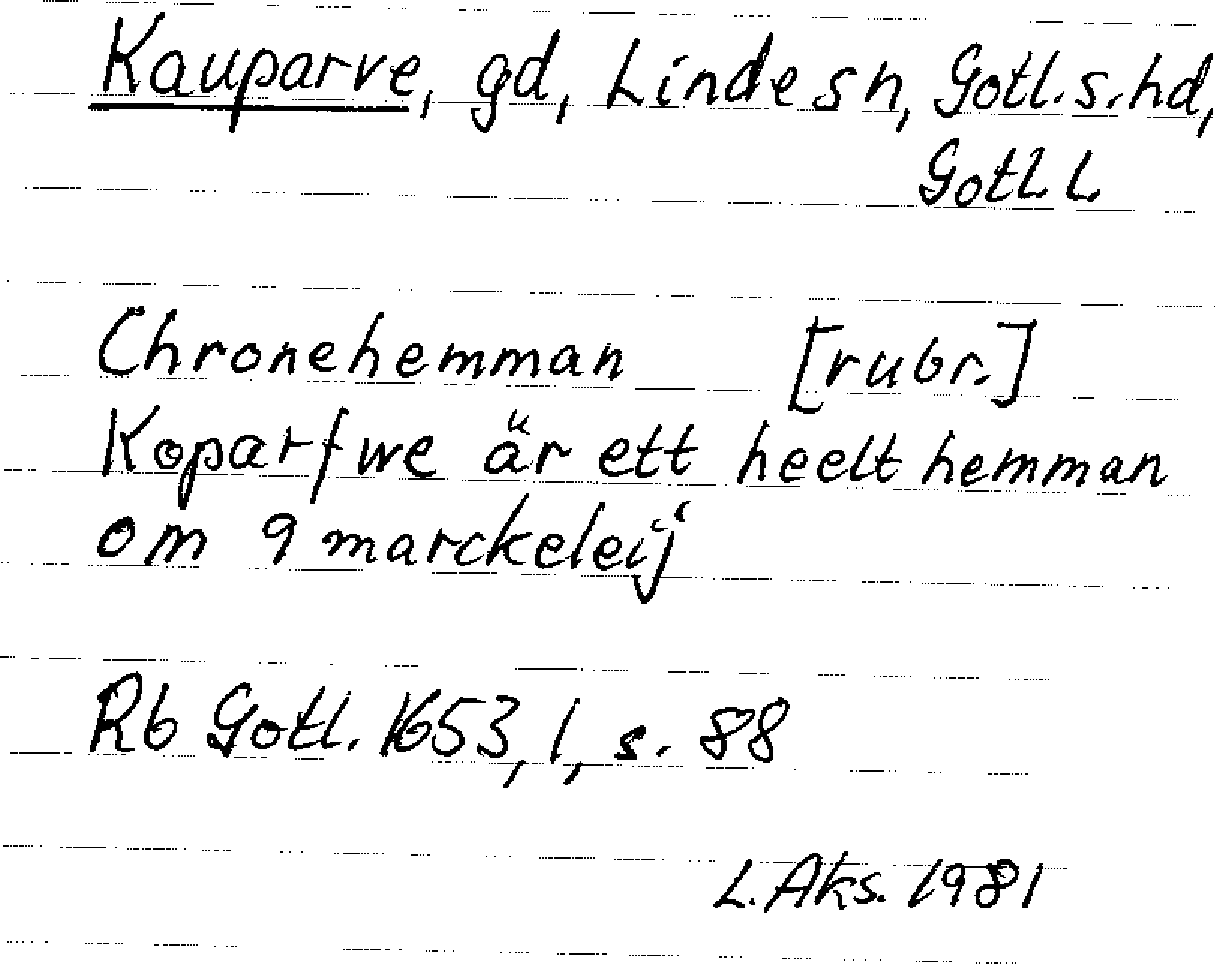 Kauparve, gd, Linde sn, Gotl. s. hd,
Gotl. L
Chronehemman [rubr.]
Koparfwe är ett heelt hemman
om 9 marckeleij
Rb Gotl. 1653, 1, s. 88
L. Aks. 1981